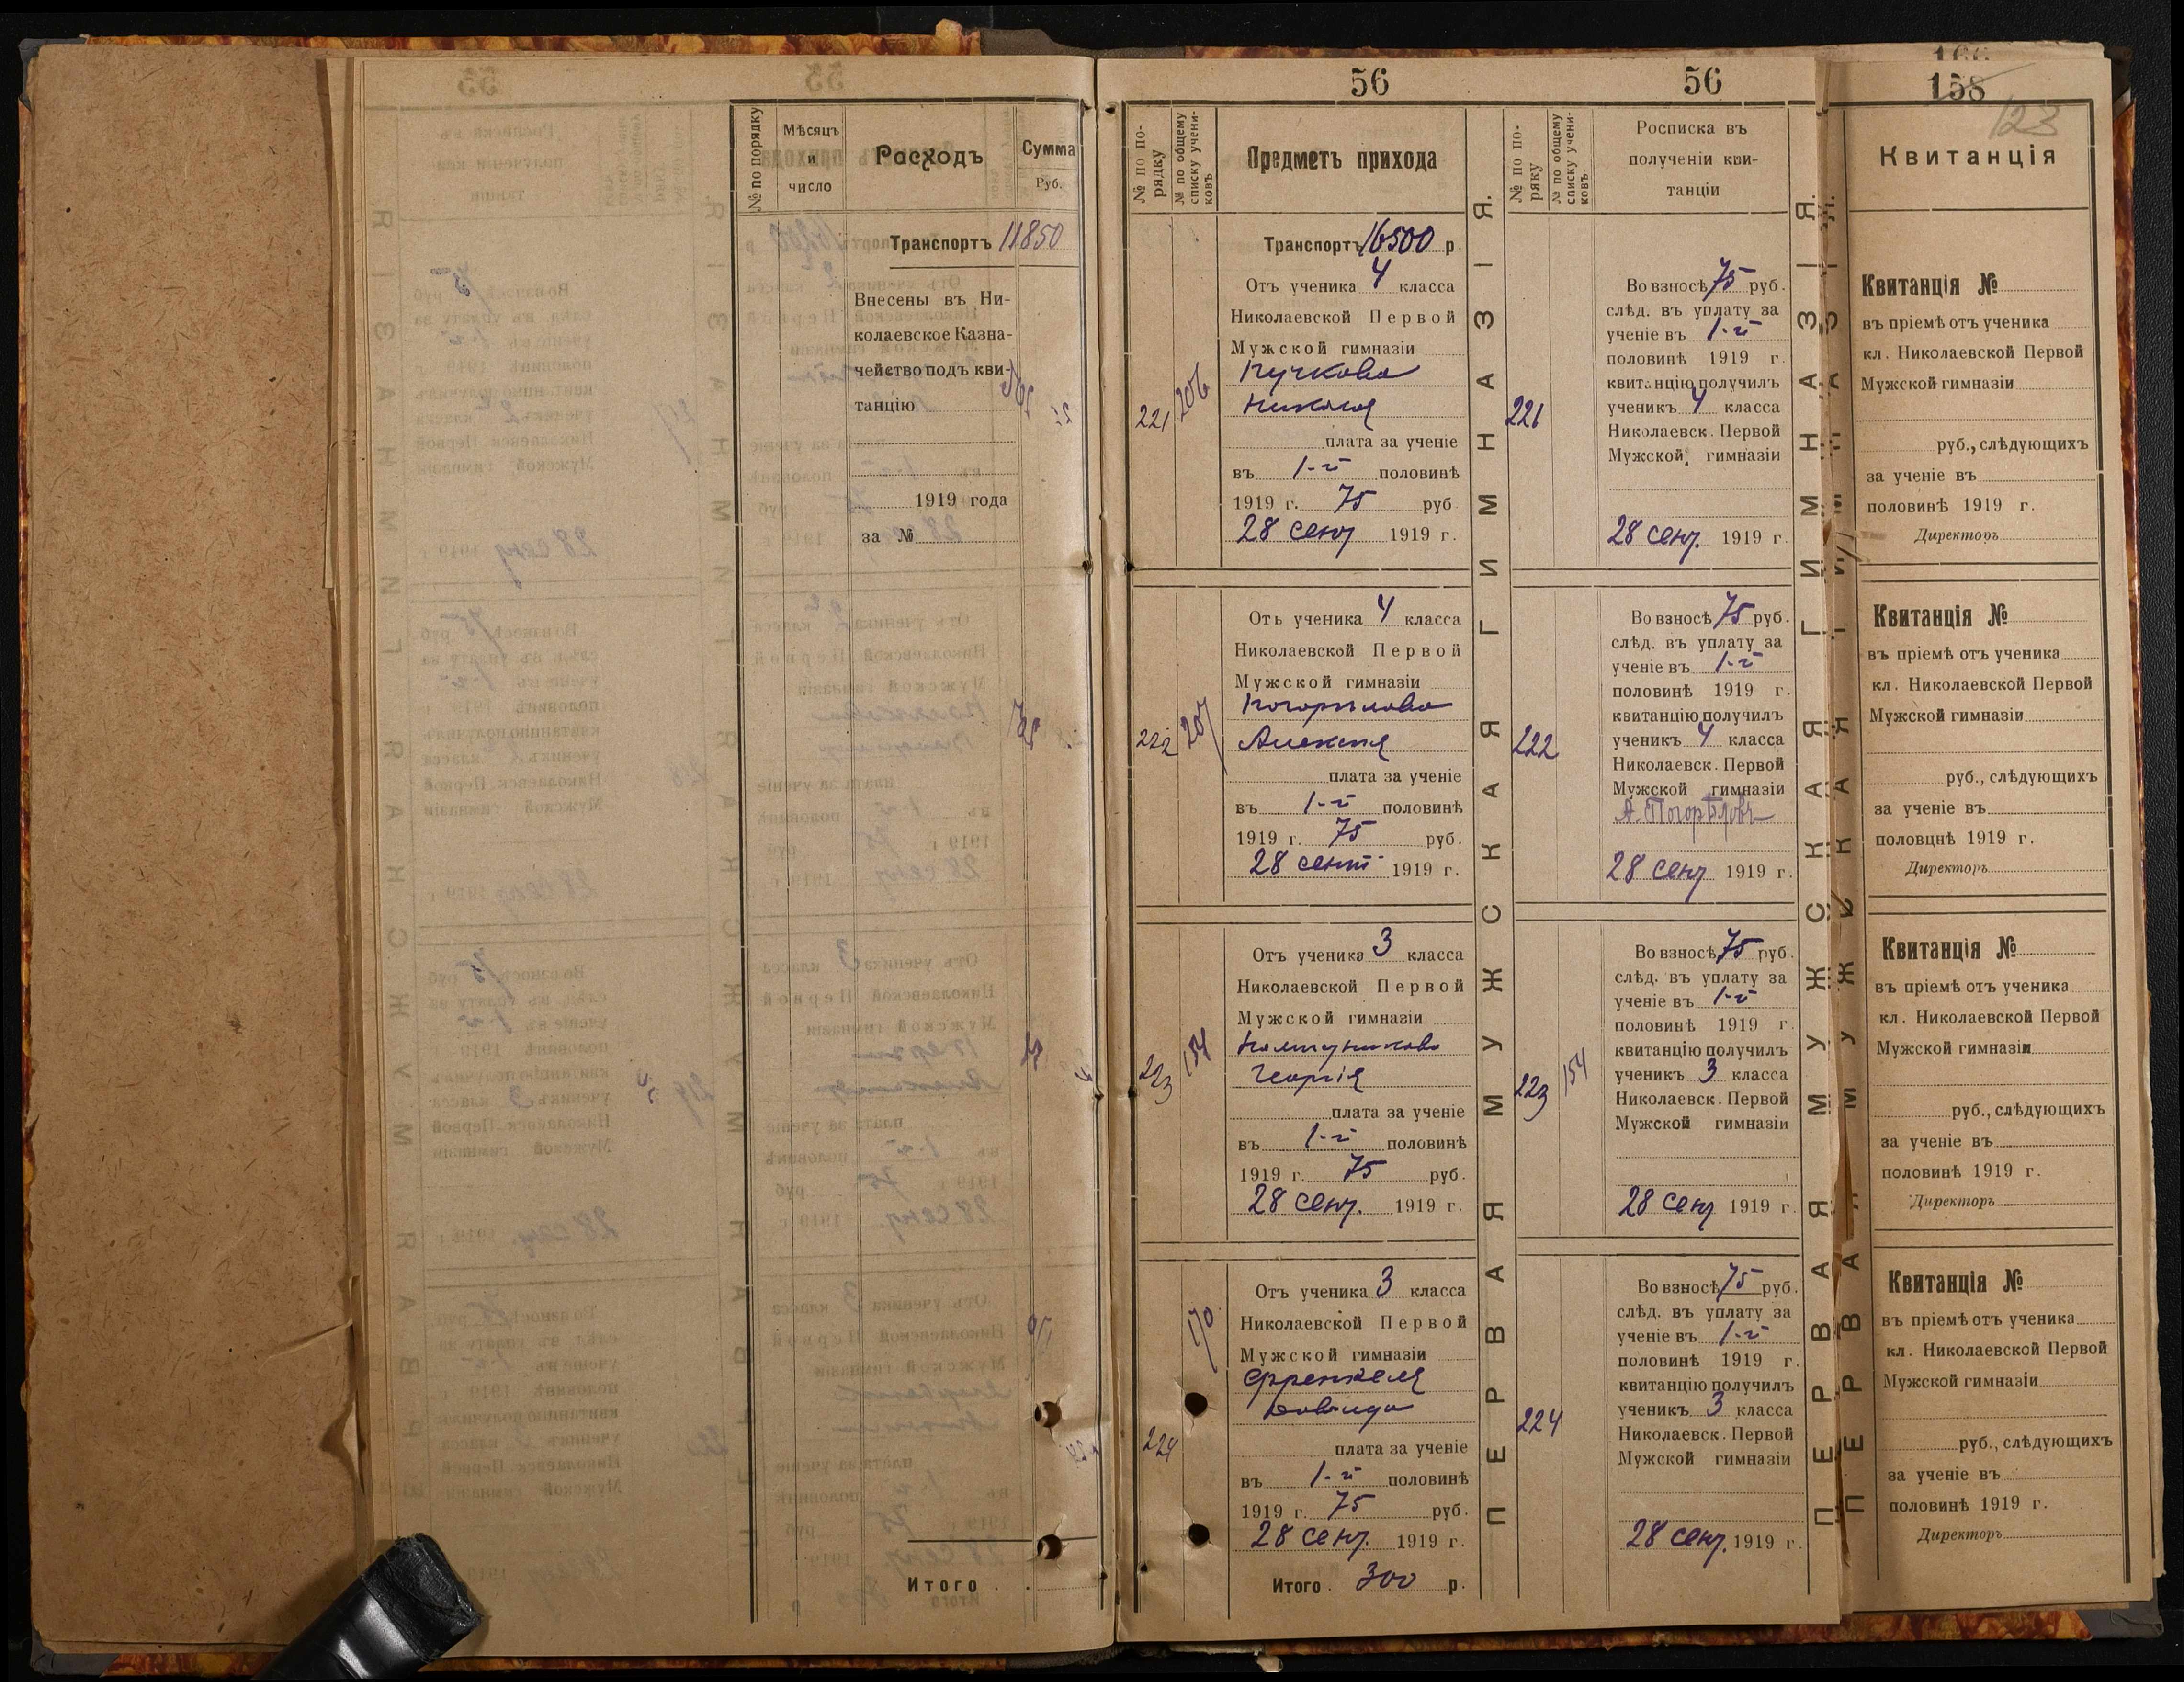 № по порядку
Мѣсяцъ
и
число
Расходъ
Сумма
Руб.
Транспортъ 11850
Внесены въ Ни-
колаевское Казна-
чейство подъ кви-
танцію
1919 года
за №
Итого
56
№ по по-
рядку
№ по общему
списку учени-
ковъ
Предметъ прихода
Транспортъ 16500 р.
221
206
Отъ ученика 4 класса
Николаевской Первой
Мужской гимназіи
Кучкова
Николая
плата за ученіе
въ 1-й половинѣ
1919 г. 75 руб
28 сент 1919 г.
222
207
Отъ ученика 4 класса
Николаевской Первой
Мужской гимназіи
Погорѣлова
Алексѣя
плата за ученіе
въ 1-й половинѣ
1919 г. 75 руб.
28 сент 1919 г.
223
154
Отъ ученика 3 класса
Николаевской Первой
Мужской гимназіи
Георгія
плата за ученіе
въ 1-й половинѣ
1919 г. 75 руб.
28 сент. 1919 г.
224
170
Отъ ученика 3 класса
Николаевской Первой
Мужской гимназіи
Френкеля
Давида
плата за ученіе
въ 1-й половинѣ
1919 г. 75 руб.
28 сент. 1919 г.
Итого. 300 р.
ПЕРВАЯ МУЖСКАЯ ГИМНАЗІЯ.
56
№ по по-
ряку
№ по общему
списку учени-
ковъ.
Росписка въ
полученіи кви-
танціи
221
Во взносѣ 75 руб.
слѣд. въ уплату за
ученіе въ 1-й
половинѣ 1919 г.
квитанцію получилъ
ученикъ 4 класса
Николаевск. Первой
Мужской гимназіи
28 сент. 1919 г.
222
Во взносѣ 75 руб.
слѣд. въ уплату за
ученіе въ 1-й
половинѣ 1919 г.
квитанцію получилъ
ученикъ 4 класса
Николаевск. Первой
Мужской гимназіи
А. Погорѣловъ
28 сент 1919 г.
223
154
Во взносѣ 75 руб.
слѣд. въ уплату за
ученіе въ 1-й
половинѣ 1919 г.
квитанцію получилъ
ученикъ 3 класса
Николаевск. Первой
Мужской гимназіи
28 сент 1919 г.
224
Во взносѣ 75 руб.
слѣд. въ уплату за
ученіе въ 1-й
половинѣ 1919 г.
квитанцію получилъ
ученикъ 3 класса
Николаевск. Первой
Мужской гимназіи
28 сент. 1919 г.
ПЕРВАЯ МУЖСКАЯ ГИМНАЗІЯ.
158
123
Квитанція
Квитанція №
въ пріемѣ отъ ученика
кл. Николаевской Первой
Мужской гимназіи
руб., слѣдующихъ
за ученіе въ
половинѣ 1919 г.
Директоръ
Квитанція №
въ пріемѣ отъ ученика
кл. Николаевской Первой
Мужской гимназіи
руб., слѣдующихъ
за ученіе въ
половцнѣ 1919 г.
Директоръ
Квитанція №
въ пріемѣ отъ ученика
кл. Николаевской Первой
Мужской гимназіи
руб., слѣдующихъ
за ученіе въ
половинѣ 1919 г.
Директоръ
Квитанція №
въ пріемѣ отъ ученика
кл. Николаевской Первой
Мужской гимназіи
руб., слѣдующихъ
за ученіе въ
половинѣ 1919 г.
Директоръ